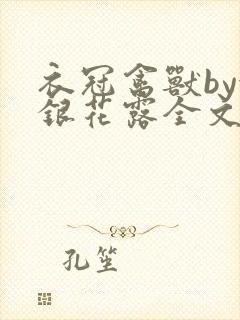 衣冠禽獸by
銀花露全文
孔笙